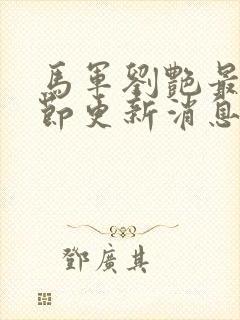 馬軍劉艷最
節更新消息
鄧廣其